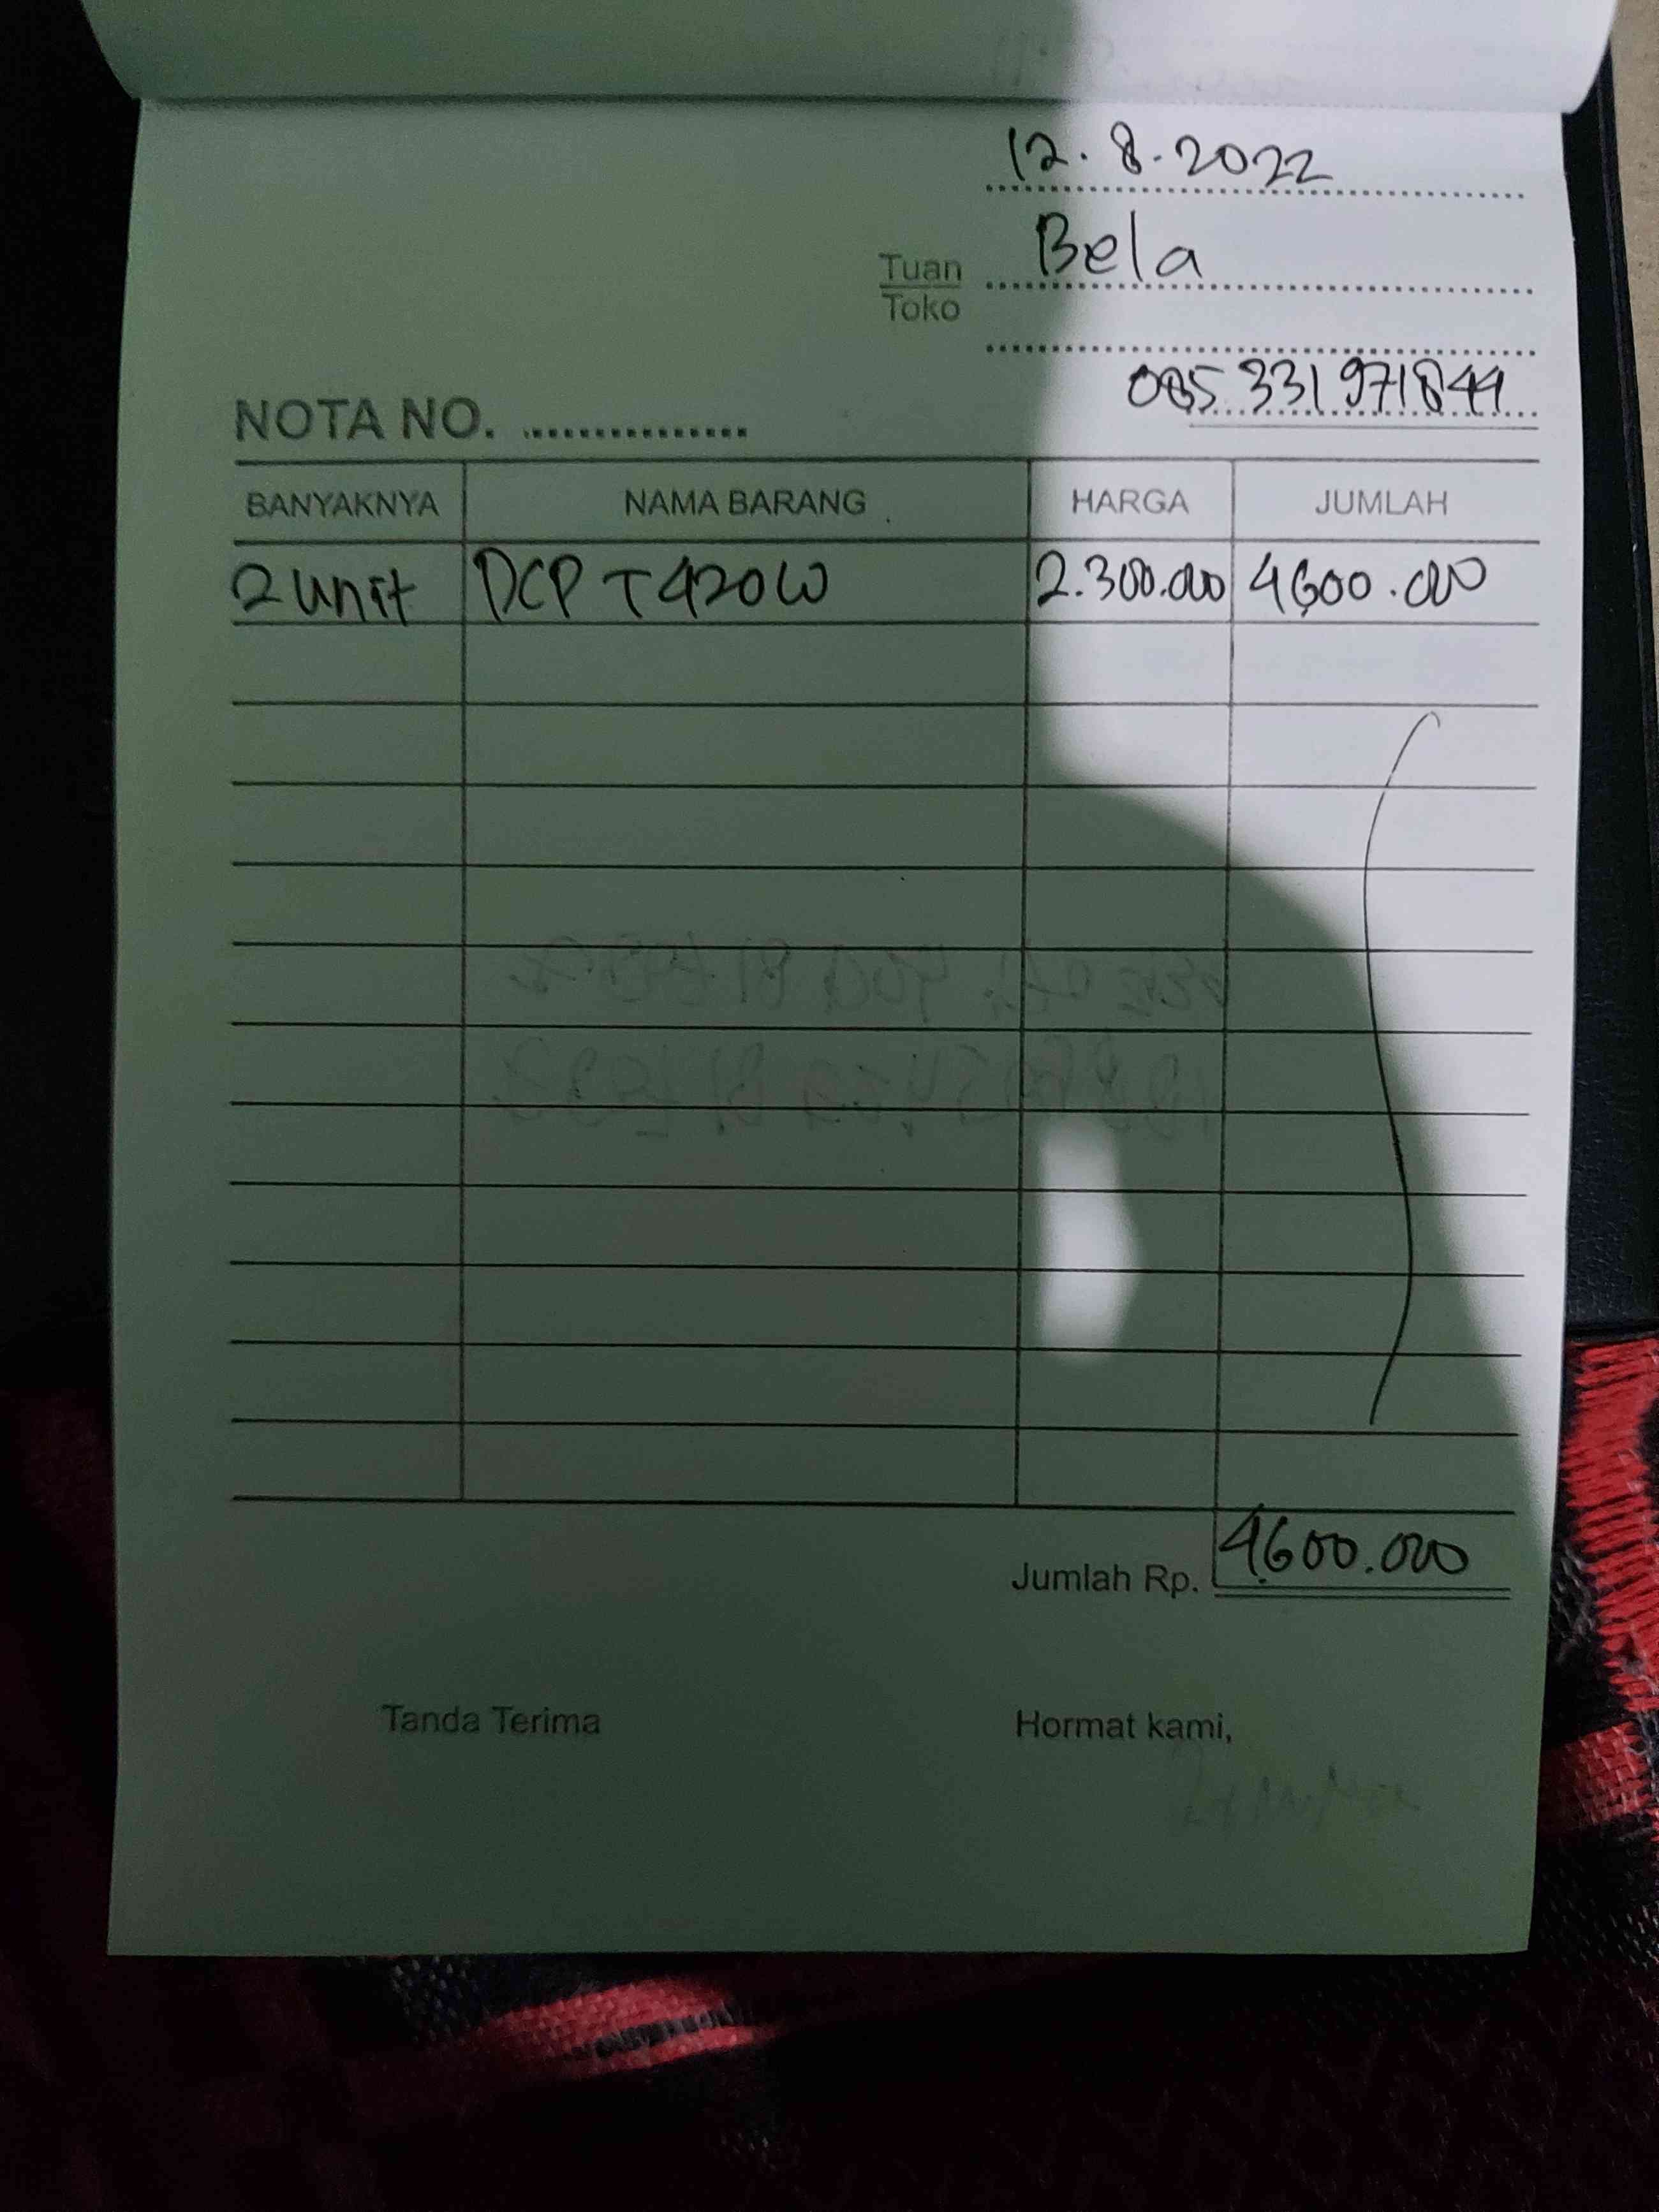 12.8.2022
Tuan Bela
Toko
085 331 971844
NOTA NO. ................
BANYAKNYA NAMA BARANG HARGA JUMLAH
2 unit DCP T420W 2.300.000 4600.000
Jumlah Rp. 4600.000
Tanda Terima Hormat kami,